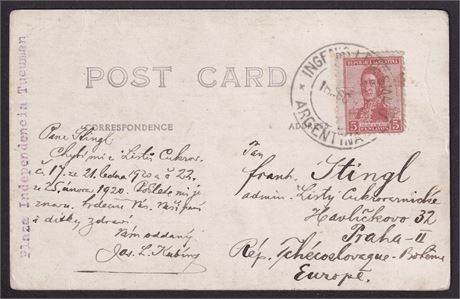 Plaza Independencia Tucuman
POST CARD
CORRESPONDENCE
INGENIO
ARGENTINA
REPUBLICA ARGENTINA
5 CENTAVOS 5
Pane Stingl
Chybí mi z Listů Cukrov.
č. 17. ze 21. ledna 1920 a č. 22.
ze 25. února 1920. Pošlete mi je
znovu. Srdečně Vás
a dítky zdraví
Vám oddaný
Jos. L. Kubín
Pán
Frant. Stingl
admin. Listy Cukrovarnické
Havlíčkovo 32
Praha-II
Rép. Tchécoslovaque-Bohème
Europe.